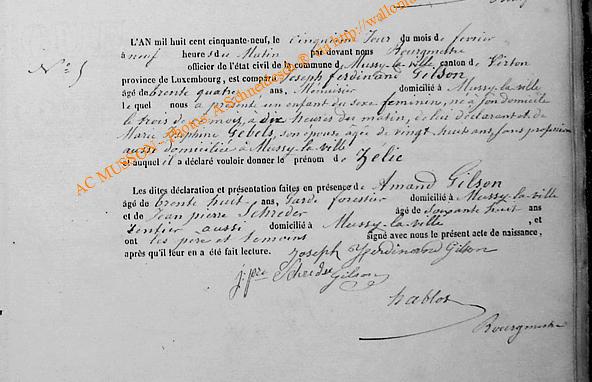 L'AN mil huit cent cinquante-neuf, le cinquième jour du mois de fevrier
à neuf heures du Matin par devant nous Bourgmestre
N° 5 officier de l'état civil de la commune de Mussy-la-ville, canton de Virton
province de Luxembourg, est comparu Joseph ferdinand Gilson
âgé de trente quatre ans, Menuisier domicilié à Mussy-la-ville
lequel nous a présenté un enfant du sexe feminin, né à son domicile
le trois de ce mois, à dix heures du matin, de lui déclarant et de
Marie Gobels, son épouse âgée de vingt huit ans, sans profession
aussi domiciliée à Mussy-la-ville
et auquel il a déclaré vouloir donner le prénom de Zélie
Les dites déclaration et présentation faites en présence de Amand Gilson
âgé de trente huit ans, Garde forestier domicilié à Mussy-la-ville
et de Jean pierre Schreder âgé de soixante huit ans
rentier aussi domicilié à Mussy-la-ville , et
ont les pere et temoins signé avec nous le présent acte de naissance,
après qu'il leur en a été fait lecture. Joseph Ferdinand Gilson
j. pre Schreder Gilson
hablot
Bourgmestre
AC MUSSON - Photos: A. Schneidesch © via http://wallonia